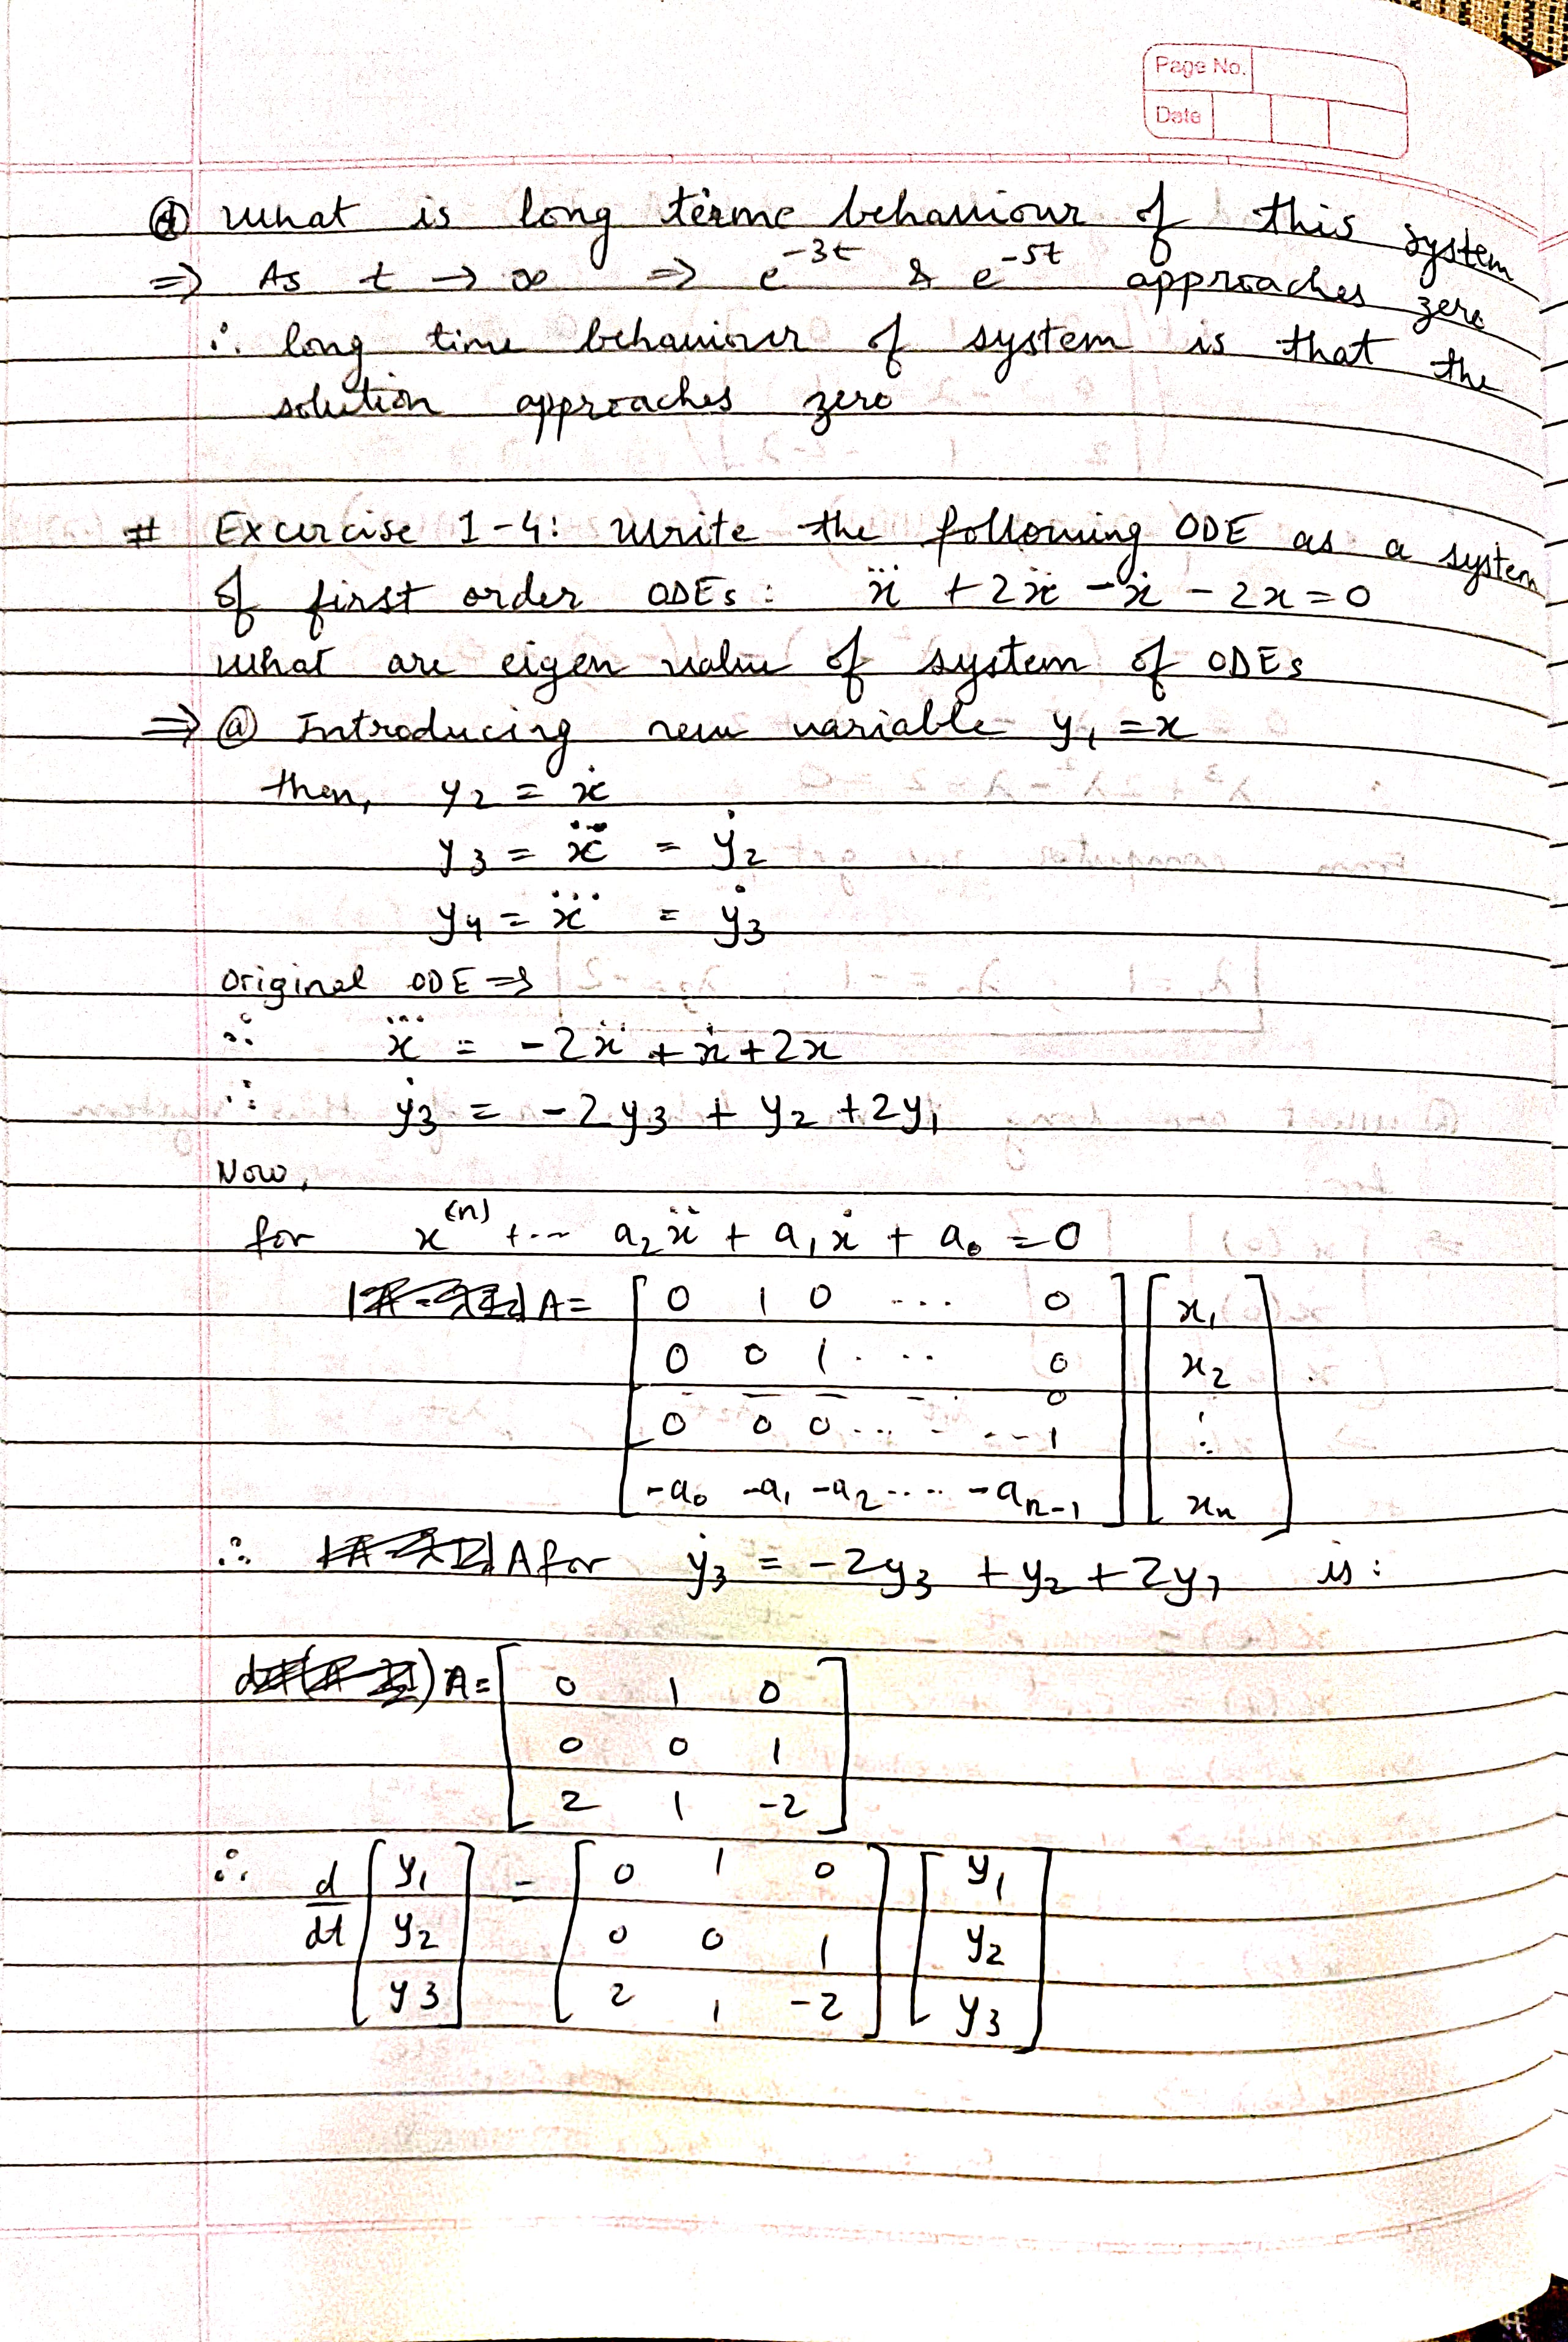 Page No.
Date
ⓓ what is long terme behaviour of this system
⇒ As t → ∞ ⇒ e^{-3t} & e^{-5t} approaches zero
∴ long time behaviour of system is that the
solution approaches zero
# Excercise 1-4: Write the following ODE as a system
of first order ODEs: x⃛ + 2ẍ - ẋ - 2x = 0
what are eigen value of system of ODEs
⇒ ⓐ Introducing new variable y₁ = x
then, y₂ = ẋ
y₃ = ẍ = ẏ₂
y₄ = x⃛ = ẏ₃
Original ODE ⇒
∴ x⃛ = -2ẍ + ẋ + 2x
∴ ẏ₃ = -2y₃ + y₂ + 2y₁
Now,
for x^{(n)} + ... a₂ẍ + a₁ẋ + a₀ = 0
A = [ 0 1 0 ... 0 ] [ x₁ ]
0 0 1 ... 0 x₂
0
0 0 0 ... 1 :
-a₀ -a₁ -a₂ .... -a_{n-1} xₙ
∴ A for ẏ₃ = -2y₃ + y₂ + 2y₁ is:
A = [ 0 1 0 ]
0 0 1
2 1 -2
∴ d/dt [ y₁ ] = [ 0 1 0 ] [ y₁ ]
y₂ 0 0 1 y₂
y₃ 2 1 -2 y₃